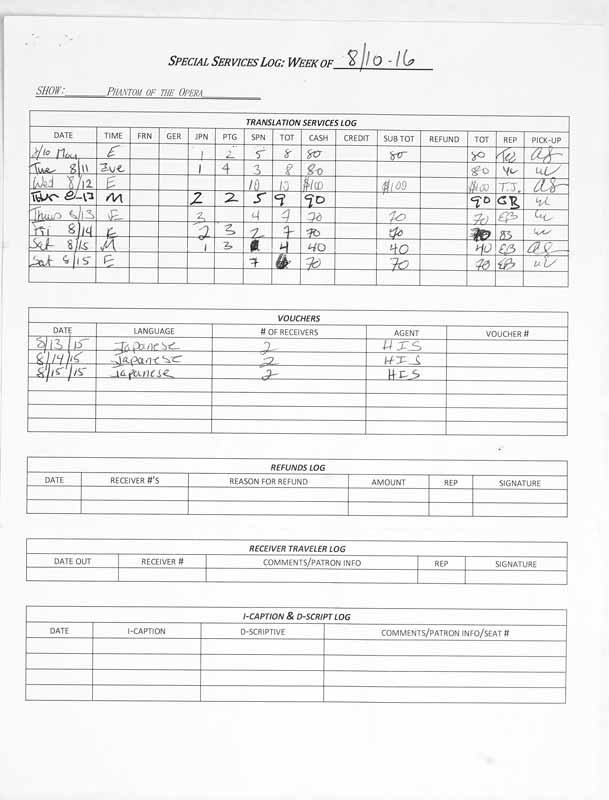 SPECIAL SERVICES LOG: WEEK OF 8/10-16
SHOW: PHANTOM OF THE OPERA
TRANSLATION SERVICES LOG
DATE TIME FRN GER JPN PTG SPN TOT CASH CREDIT SUB TOT REFUND TOT REP PICK-UP
8/10 Mon E 1 2 5 8 80 80 80
Tue 8/11 Eve 1 4 3 8 80 80 YL
Wed 8/12 E 10 10 $100 $100 $100 T.J.
Thur 8-13 M 2 2 5 9 90 90 GB
Thurs 8/13 E 3 4 7 70 70 70 EB
Fri 8/14 E 2 3 2 7 70 70 70
Sat 8/15 M 1 3 4 40 40 40 EB
Sat 8/15 E 7 70 70 70 EB
VOUCHERS
DATE LANGUAGE # OF RECEIVERS AGENT VOUCHER #
8/13/15 Japanese 2 HIS
8/14/15 Japanese 2 HIS
8/15/15 Japanese 2 HIS
REFUNDS LOG
DATE RECEIVER #'S REASON FOR REFUND AMOUNT REP SIGNATURE
RECEIVER TRAVELER LOG
DATE OUT RECEIVER # COMMENTS/PATRON INFO REP SIGNATURE
I-CAPTION & D-SCRIPT LOG
DATE I-CAPTION D-SCRIPTIVE COMMENTS/PATRON INFO/SEAT #